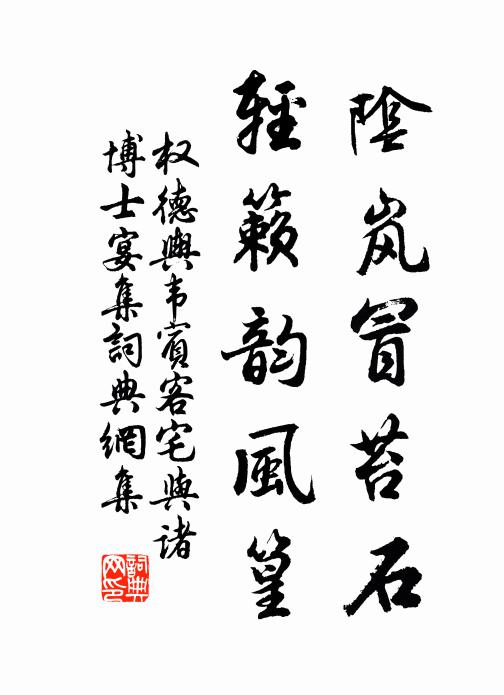 陰岚冒苔石
輕籁韵風篁
权德輿韦賓客宅與諸
博士宴集詞典網集
詞典
网印